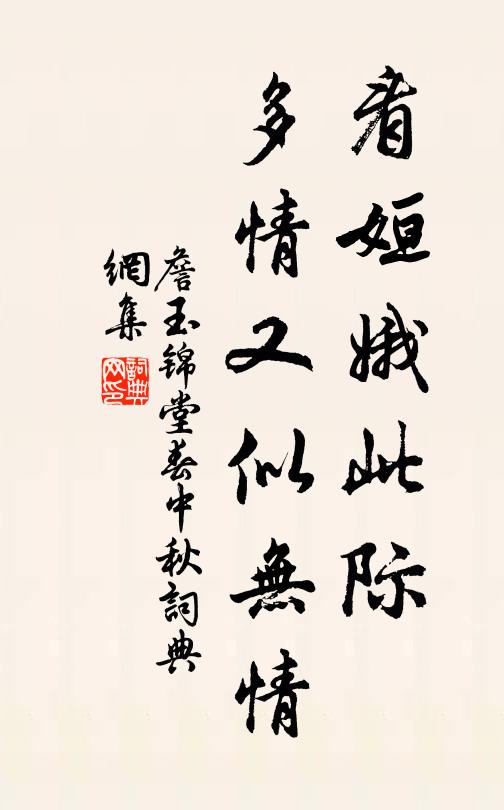 看姮娥此际
多情又似無情
詹玉锦堂春中秋詞典
網集
詞典
网印